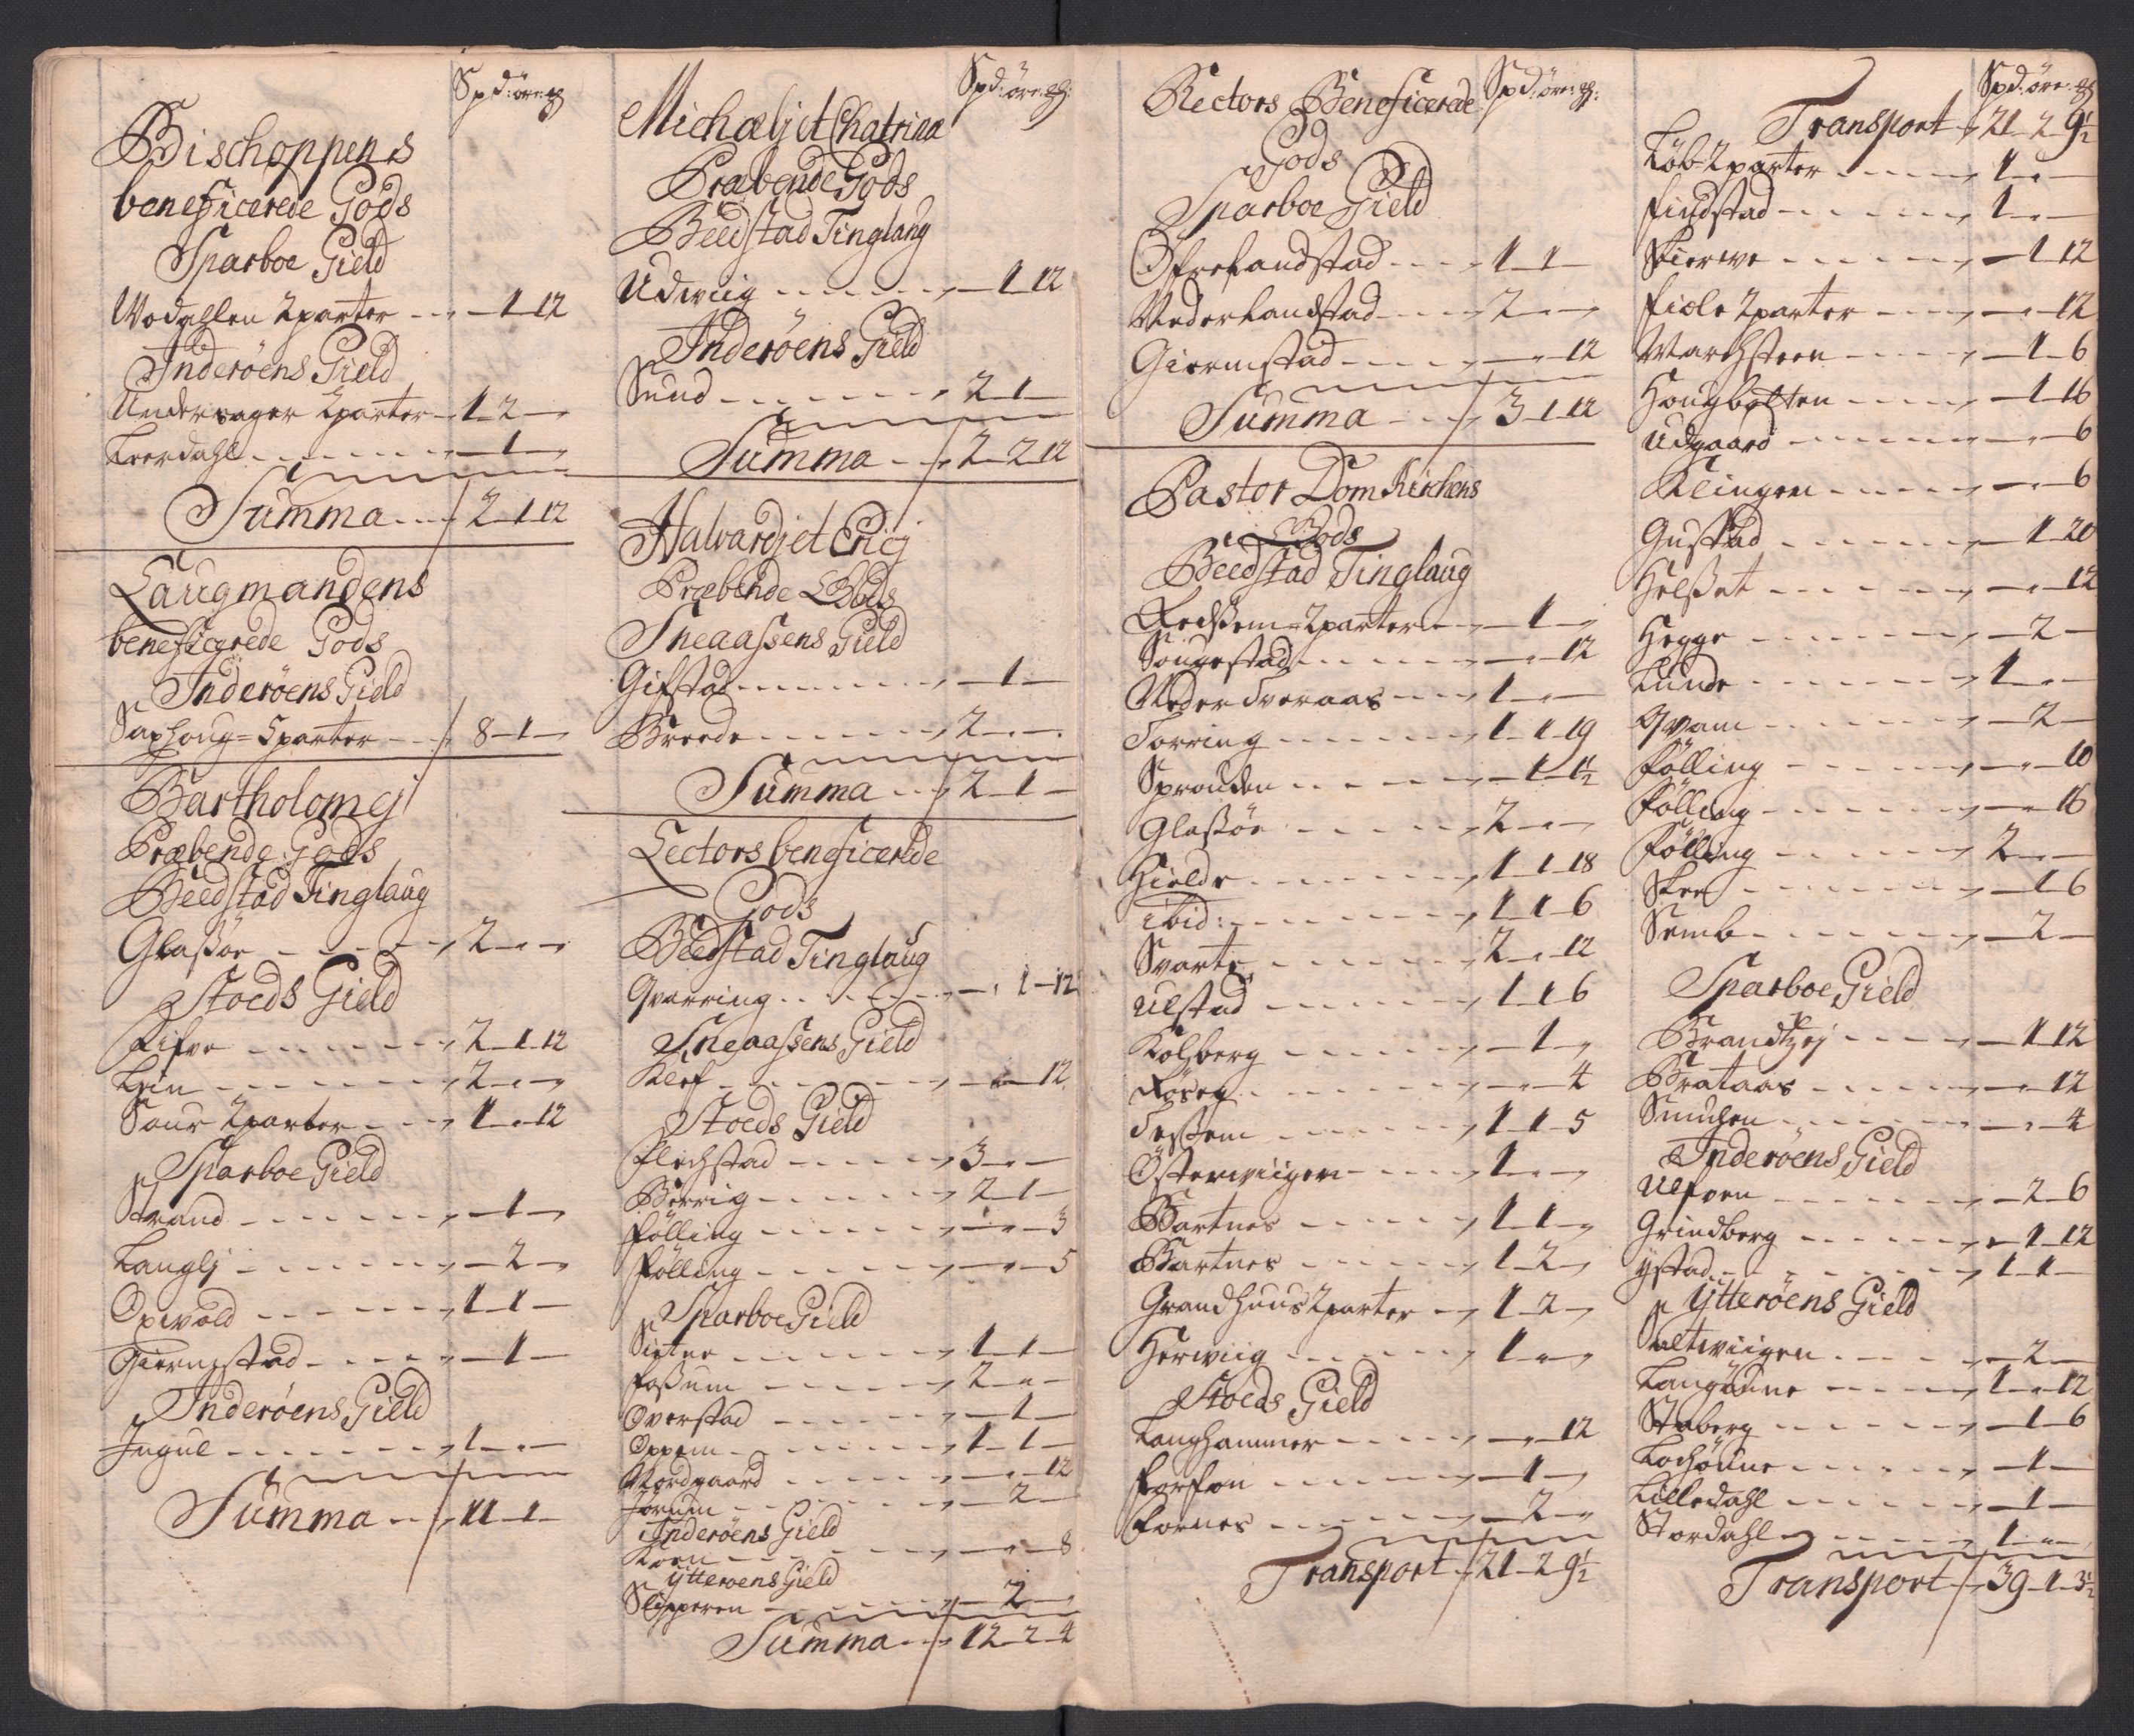 Spd: øre: g
Bischoppens
beneficerede Gods
Sparboe Gield
Wodallen 2parter - - - 1 - 12
Inderöens Gield
Undersager 2parter - 1 - 2 -
Leerdahl - - - 1 -
Summa - - - 2 - 1 - 12
Laugmandens
beneficerede Gods
Inderöens Gield
Saxhoug = 5parter - - 8 - 1 -
Bartholomej
Præbende Gods
Beedstad Tinglaug
Glaßöe - - - 2 - -
Stoeds Gield
Rifve - - - 2 - 1 - 12
Lein - - - 2 - -
Saur 2parter - - - 1 - 12
Sparboe Gield
Strand - - - 1 -
Langlj - - - 2 -
Opwold - - - 1 - 1 -
Giermstad - - - 1 -
Inderöens Gield
Ingul - - - 1 - -
Summa - - 11 - 1 -
Spd: øre: g:
Michaelj et Chatrina
Præbende Gods
Beedstad Tinglaug
Udwiig - - - 1 - 12
Inderöens Gield
Sund - - - 2 - 1 -
Summa - - 2 - 2 - 12
Halvardj et Ericj
Præbende Gods
Sneaassens Gield
Gifstad - - - 1 -
Breede - - - 2 - -
Summa - - 2 - 1 -
Lectors beneficerede
Gods
Beedstad Tinglaug
Qvarring - - - 1 - 12
Sneaassens Gield
Klef - - - 12
Stoeds Gield
Flechstad - - - 3 - -
Berrig - - - 2 - 1 -
Fölling - - - 3
Fölling - - - 5
Sparboe Gield
Sietne - - - 1 - 1 -
Foßum - - - 2 - -
Overstad - - - 1 -
Oppem - - - 1 - 1 -
Nordgaard - - - 12
Jorum - - - 2 -
Inderöens Gield
Korn - - - 8
Ytteröens Gield
Slipperen - - - 2 -
Summa - - 12 - 2 - 4
Rectors Beneficerede Spd: øre: g:
Gods
Sparboe Gield
Öfrelandstad - - - 1 - 1 -
Nederlandstad - - - 2 - -
Giermstad - - - 12
Summa - - 3 - 1 - 12
Pastor Dom Kirchens
Gods
Beedstad Tinglaug
Redßem = 2parter - - - 1 -
Sougestad - - - 12
Neder Tveraas - - - 1 - -
Torring - - - 1 - 1 - 19
Sprouden - - - 1 - 1½
Glaßöe - - - 2 - -
Hielde - - - 1 - 1 - 18
ibid: - - - 1 - 1 - 6
Svarte - - - 2 - 12
Ulstad - - - 1 - 1 - 6
Kolberg - - - 1 -
Röseg - - - 4
Teßem - - - 1 - 1 - 5
Österwiigen - - - 1 - -
Bartnes - - - 1 - 1 -
Bartnes - - - 1 - 2 -
Grandhuus 2parter - - 1 - 2 -
Herwiig - - - 1 - -
Stoeds Gield
Langhammer - - - 12
Forfon - - - 1 -
Fornes - - - 2 -
Transport - 21 - 2 - 9½
Spd: øre: g
Transport - 21 - 2 - 9½
Löb 2parter - - - 1 - -
Findstad - - - 1 - -
Skierwe - - - 1 - 12
Fiole 2parter - - - 12
Warchsteen - - - 1 - 6
Hougbolten - - - 1 - 16
Udgaard - - - 6
Klingen - - - 6
Gustad - - - 1 - 20
Helßet - - - 12
Hegge - - - 2 -
Lunde - - - 1 - -
Qvam - - - 2 -
Fölling - - - 10
Fölling - - - 16
Fölling - - - 2 - -
Skee - - - 1 - 6
Semb - - - 2 -
Sparboe Gield
Brandtzej - - - 1 - 12
Brataas - - - 12
Smuchen - - - 4
Inderöens Gield
Ulfven - - - 2 - 6
Grindberg - - - 1 - 12
Ystad - - - 1 - 1 -
Ytteröens Gield
Saltwiigen - - - 2 -
Langörne - - - 1 - 12
Staberg - - - 1 - 6
Lochörne - - - 1 -
Lilledahl - - - 1 -
Stordahl - - - 1 - -
Transport - 39 - 1 - 3½